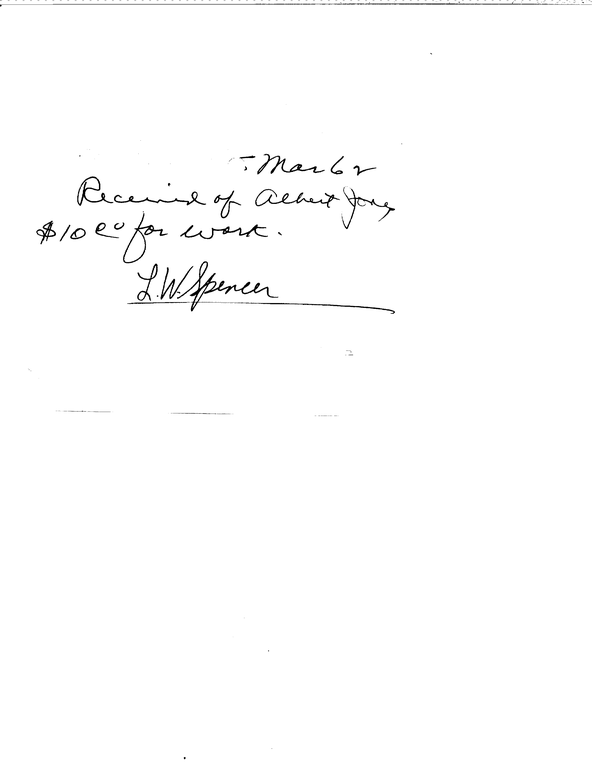 Mar 62
Received of Albert Jones
$10 00 for work.
L.W. Spencer